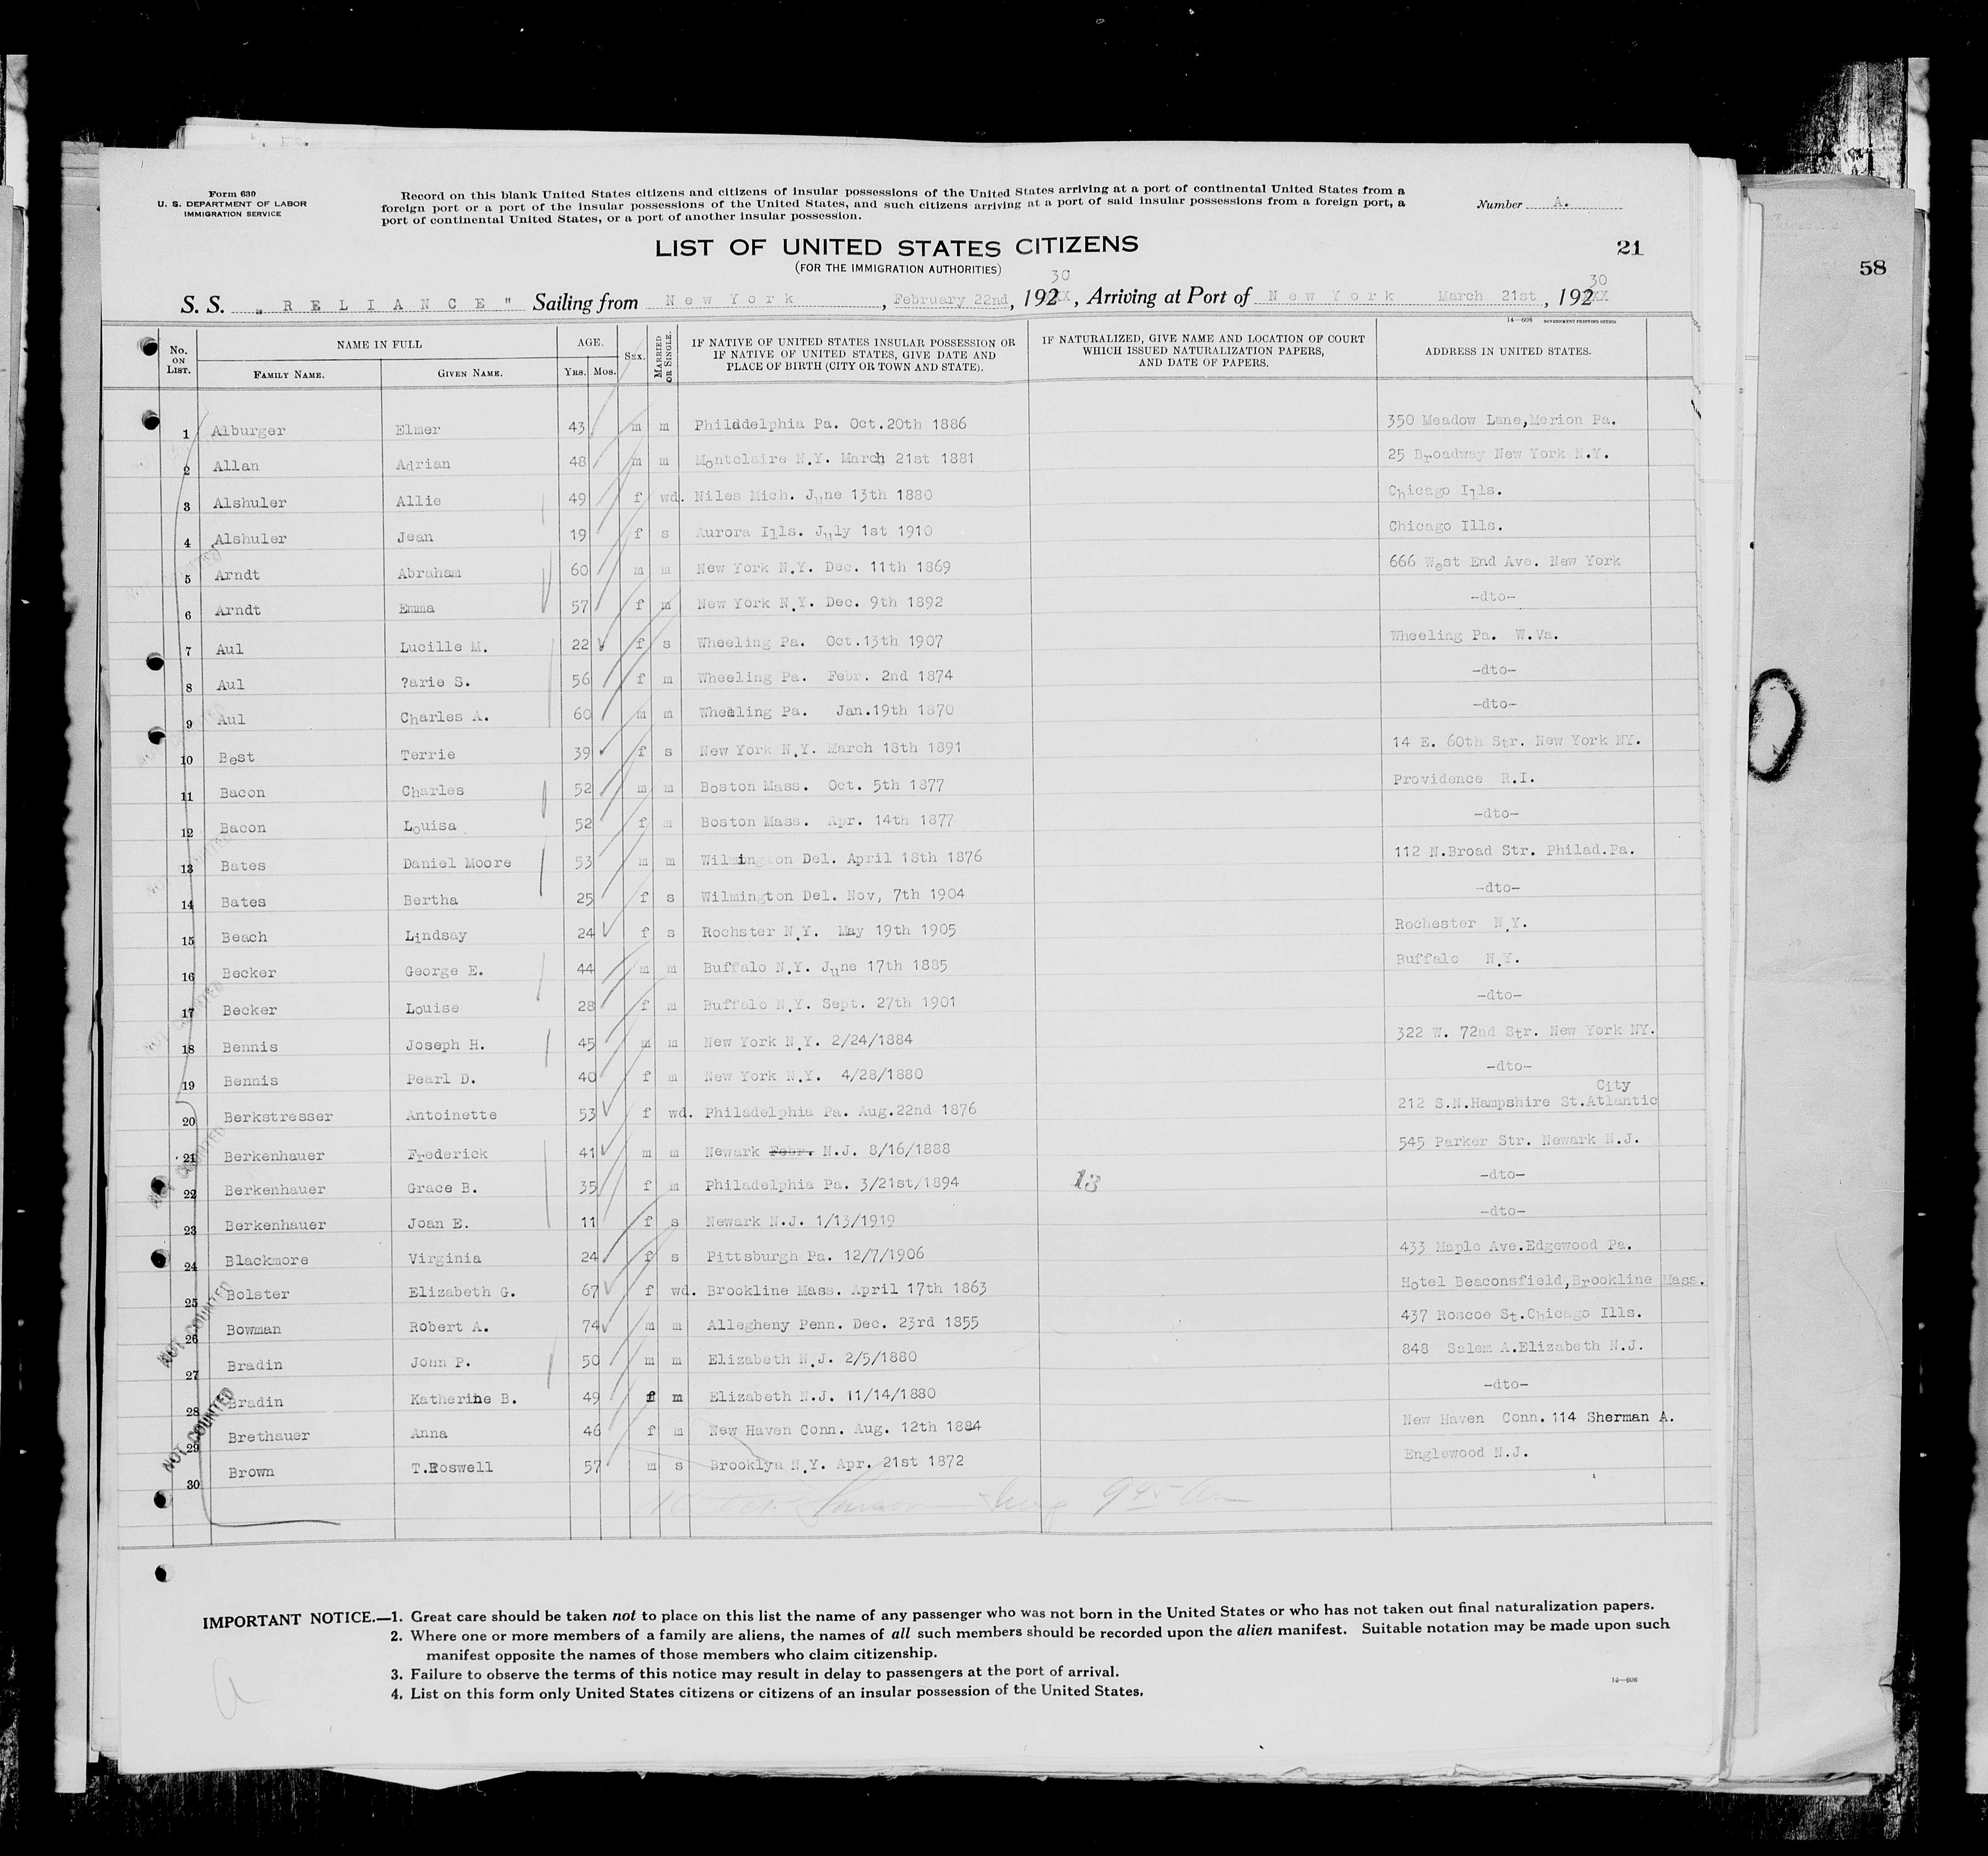 Form 630
U. S. DEPARTMENT OF LABOR
IMMIGRATION SERVICE
Record on this blank United States citizens and citizens of insular possessions of the United States arriving at a port of continental United States from a
foreign port or a port of the insular possessions of the United States, and such citizens arriving at a port of said insular possessions from a foreign port, a
port of continental United States, or a port of another insular possession.
Number A.
LIST OF UNITED STATES CITIZENS
21
58
(FOR THE IMMIGRATION AUTHORITIES)
30 30
S. S. „ R E L I A N C E " Sailing from N e w Y o r k , February 22nd, 192XX, Arriving at Port of N e w Y o r k March 21st , 192XX
14—608 GOVERNMENT PRINTING OFFICE
No. ON LIST. NAME IN FULL FAMILY NAME. GIVEN NAME. AGE. YRS. MOS. SEX. MARRIED OR SINGLE. IF NATIVE OF UNITED STATES INSULAR POSSESSION OR IF NATIVE OF UNITED STATES, GIVE DATE AND PLACE OF BIRTH (CITY OR TOWN AND STATE). IF NATURALIZED, GIVE NAME AND LOCATION OF COURT WHICH ISSUED NATURALIZATION PAPERS, AND DATE OF PAPERS. ADDRESS IN UNITED STATES.
1 Alburger Elmer 43 m m Philadelphia Pa. Oct.20th 1886 350 Meadow Lane,Merion Pa.
2 Allan Adrian 48 m m Montclaire N.Y. March 21st 1881 25 Broadway New York N.Y.
3 Alshuler Allie 49 f wd. Niles Mich. June 13th 1880 Chicago Ills.
4 Alshuler Jean 19 f s Aurora Ills. July 1st 1910 Chicago Ills.
5 Arndt Abraham 60 m m New York N.Y. Dec. 11th 1869 666 West End Ave. New York
6 Arndt Emma 57 f m New York N.Y. Dec. 9th 1892 -dto-
7 Aul Lucille M. 22 f s Wheeling Pa. Oct.13th 1907 Wheeling Pa. W.Va.
8 Aul ?arie S. 56 f m Wheeling Pa. Febr. 2nd 1874 -dto-
9 Aul Charles A. 60 m m Wheeling Pa. Jan.19th 1870 -dto-
10 Best Terrie 39 f s New York N.Y. March 18th 1891 14 E. 60th Str. New York NY.
11 Bacon Charles 52 m m Boston Mass. Oct. 5th 1877 Providence R.I.
12 Bacon Louisa 52 f m Boston Mass. Apr. 14th 1877 -dto-
13 Bates Daniel Moore 53 m m Wilmington Del. April 18th 1876 112 N.Broad Str. Philad.Pa.
14 Bates Bertha 25 f s Wilmington Del. Nov, 7th 1904 -dto-
15 Beach Lindsay 24 f s Rochster N.Y. May 19th 1905 Rochester N.Y.
16 Becker George E. 44 m m Buffalo N.Y. June 17th 1885 Buffalo N.Y.
17 Becker Louise 28 f m Buffalo N.Y. Sept. 27th 1901 -dto-
18 Bennis Joseph H. 45 m m New York N.Y. 2/24/1884 322 W. 72nd Str. New York NY.
19 Bennis Pearl D. 40 f m New York N.Y. 4/28/1880 -dto-
City
20 Berkstresser Antoinette 53 f wd. Philadelphia Pa. Aug.22nd 1876 212 S.N.Hampshire St.Atlantic
21 Berkenhauer Frederick 41 m m Newark Febr. N.J. 8/16/1888 545 Parker Str. Newark N.J.
22 Berkenhauer Grace B. 35 f m Philadelphia Pa. 3/21st/1894 13 -dto-
23 Berkenhauer Joan E. 11 f s Newark N.J. 1/13/1919 -dto-
24 Blackmore Virginia 24 f s Pittsburgh Pa. 12/7/1906 433 Maple Ave.Edgewood Pa.
25 Bolster Elizabeth G. 67 f wd. Brookline Mass. April 17th 1863 Hotel Beaconsfield,Brookline Mass.
26 Bowman Robert A. 74 m m Allegheny Penn. Dec. 23rd 1855 437 Roscoe St.Chicago Ills.
27 Bradin John P. 50 m m Elizabeth N.J. 2/5/1880 848 Salem A.Elizabeth N.J.
28 Bradin Katherine B. 49 f m Elizabeth N.J. 11/14/1880 -dto-
29 Brethauer Anna 46 f m New Haven Conn. Aug. 12th 1884 New Haven Conn. 114 Sherman A.
30 Brown T.Roswell 57 m s Brooklyn N.Y. Apr. 21st 1872 Englewood N.J.
NOT COUNTED
NOT COUNTED
IMPORTANT NOTICE.—1. Great care should be taken not to place on this list the name of any passenger who was not born in the United States or who has not taken out final naturalization papers.
2. Where one or more members of a family are aliens, the names of all such members should be recorded upon the alien manifest. Suitable notation may be made upon such
manifest opposite the names of those members who claim citizenship.
3. Failure to observe the terms of this notice may result in delay to passengers at the port of arrival.
4. List on this form only United States citizens or citizens of an insular possession of the United States.
14—608
a